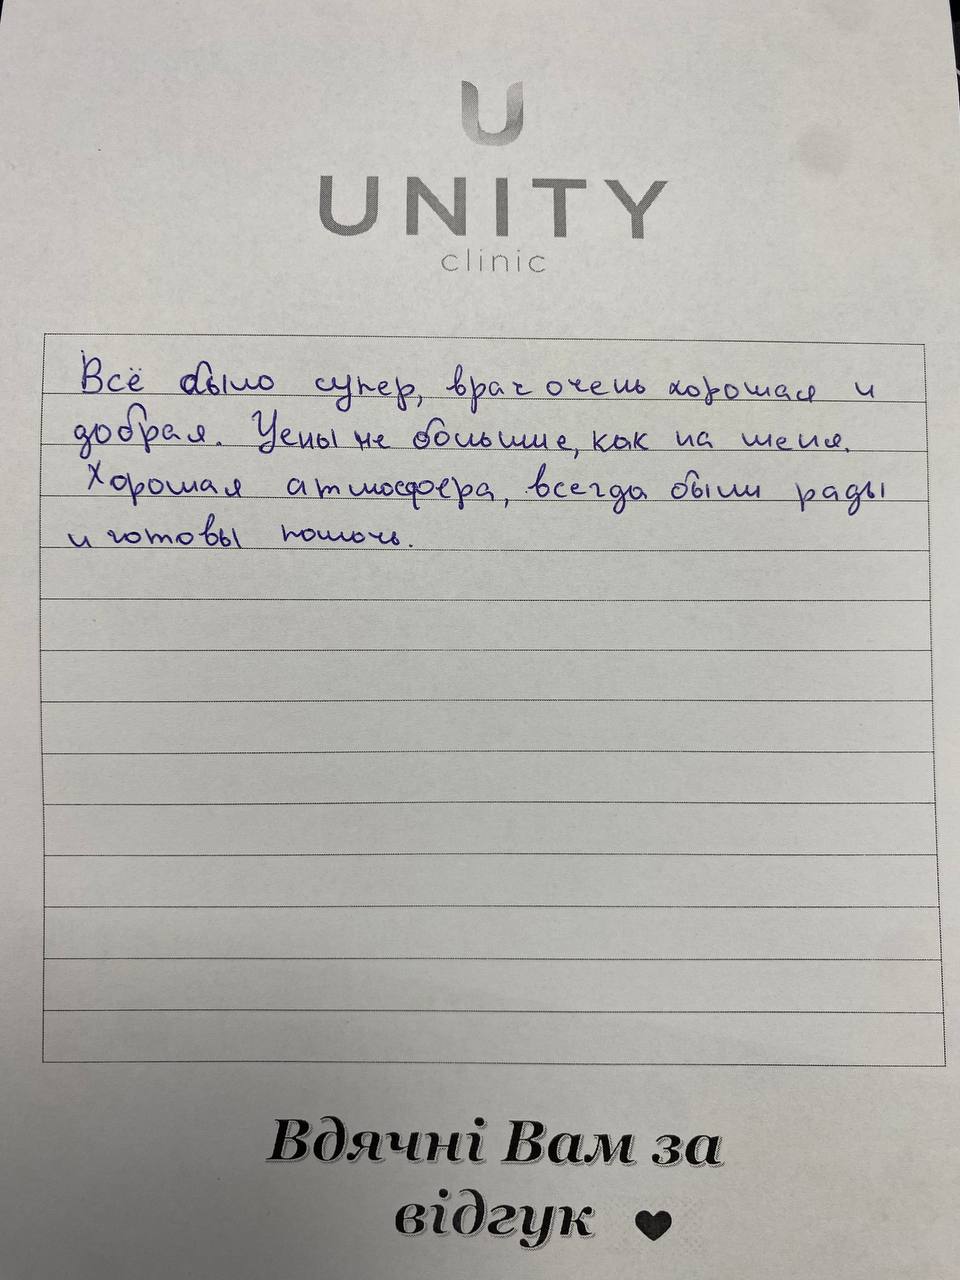 U
UNITY
clinic
Всё было супер, врач очень хорошая и
добрая. Цены не большие, как на меня.
Хорошая атмосфера, всегда были рады
и готовы помочь.
Вдячні Вам за
відгук ♥